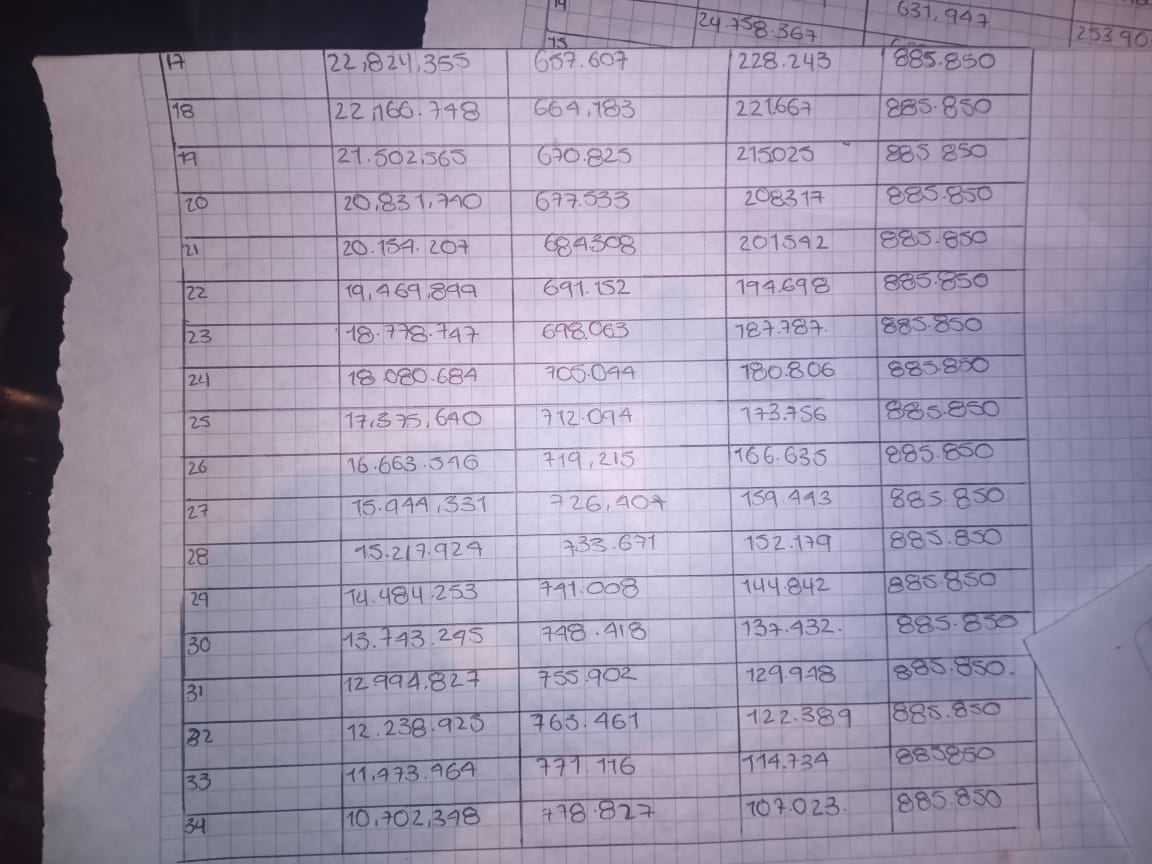 14 631,947
24.758.367 253.90
15
17 22,824,355 657.607 228.243 885.850
18 22,166.748 664,183 221667 885.850
19 21.502,565 670.825 215025 885 850
20 20,831,740 677.533 208317 885.850
21 20.154.207 684308 201542 885.850
22 19,469,899 691.152 194.698 885.850
23 18.778.747 698.063 187.787. 885.850
24 18.080.684 705.044 180.806 885.850
25 17,375,640 712.094 173.756 885.850
26 16.663.546 719,215 166.635 885.850
27 15.944,331 726,407 159.443 885.850
28 15.217.924 733.671 152.179 885.850
29 14.484.253 741.008 144.842 885.850
30 13.743.245 748.418 137.432. 885.850
31 12994,827 755.902 129.948 885.850.
32 12.238.925 765.461 122.389 885.850
33 11,473.464 771.116 114.734 885850
34 10,702,348 778.827 107.023. 885.850